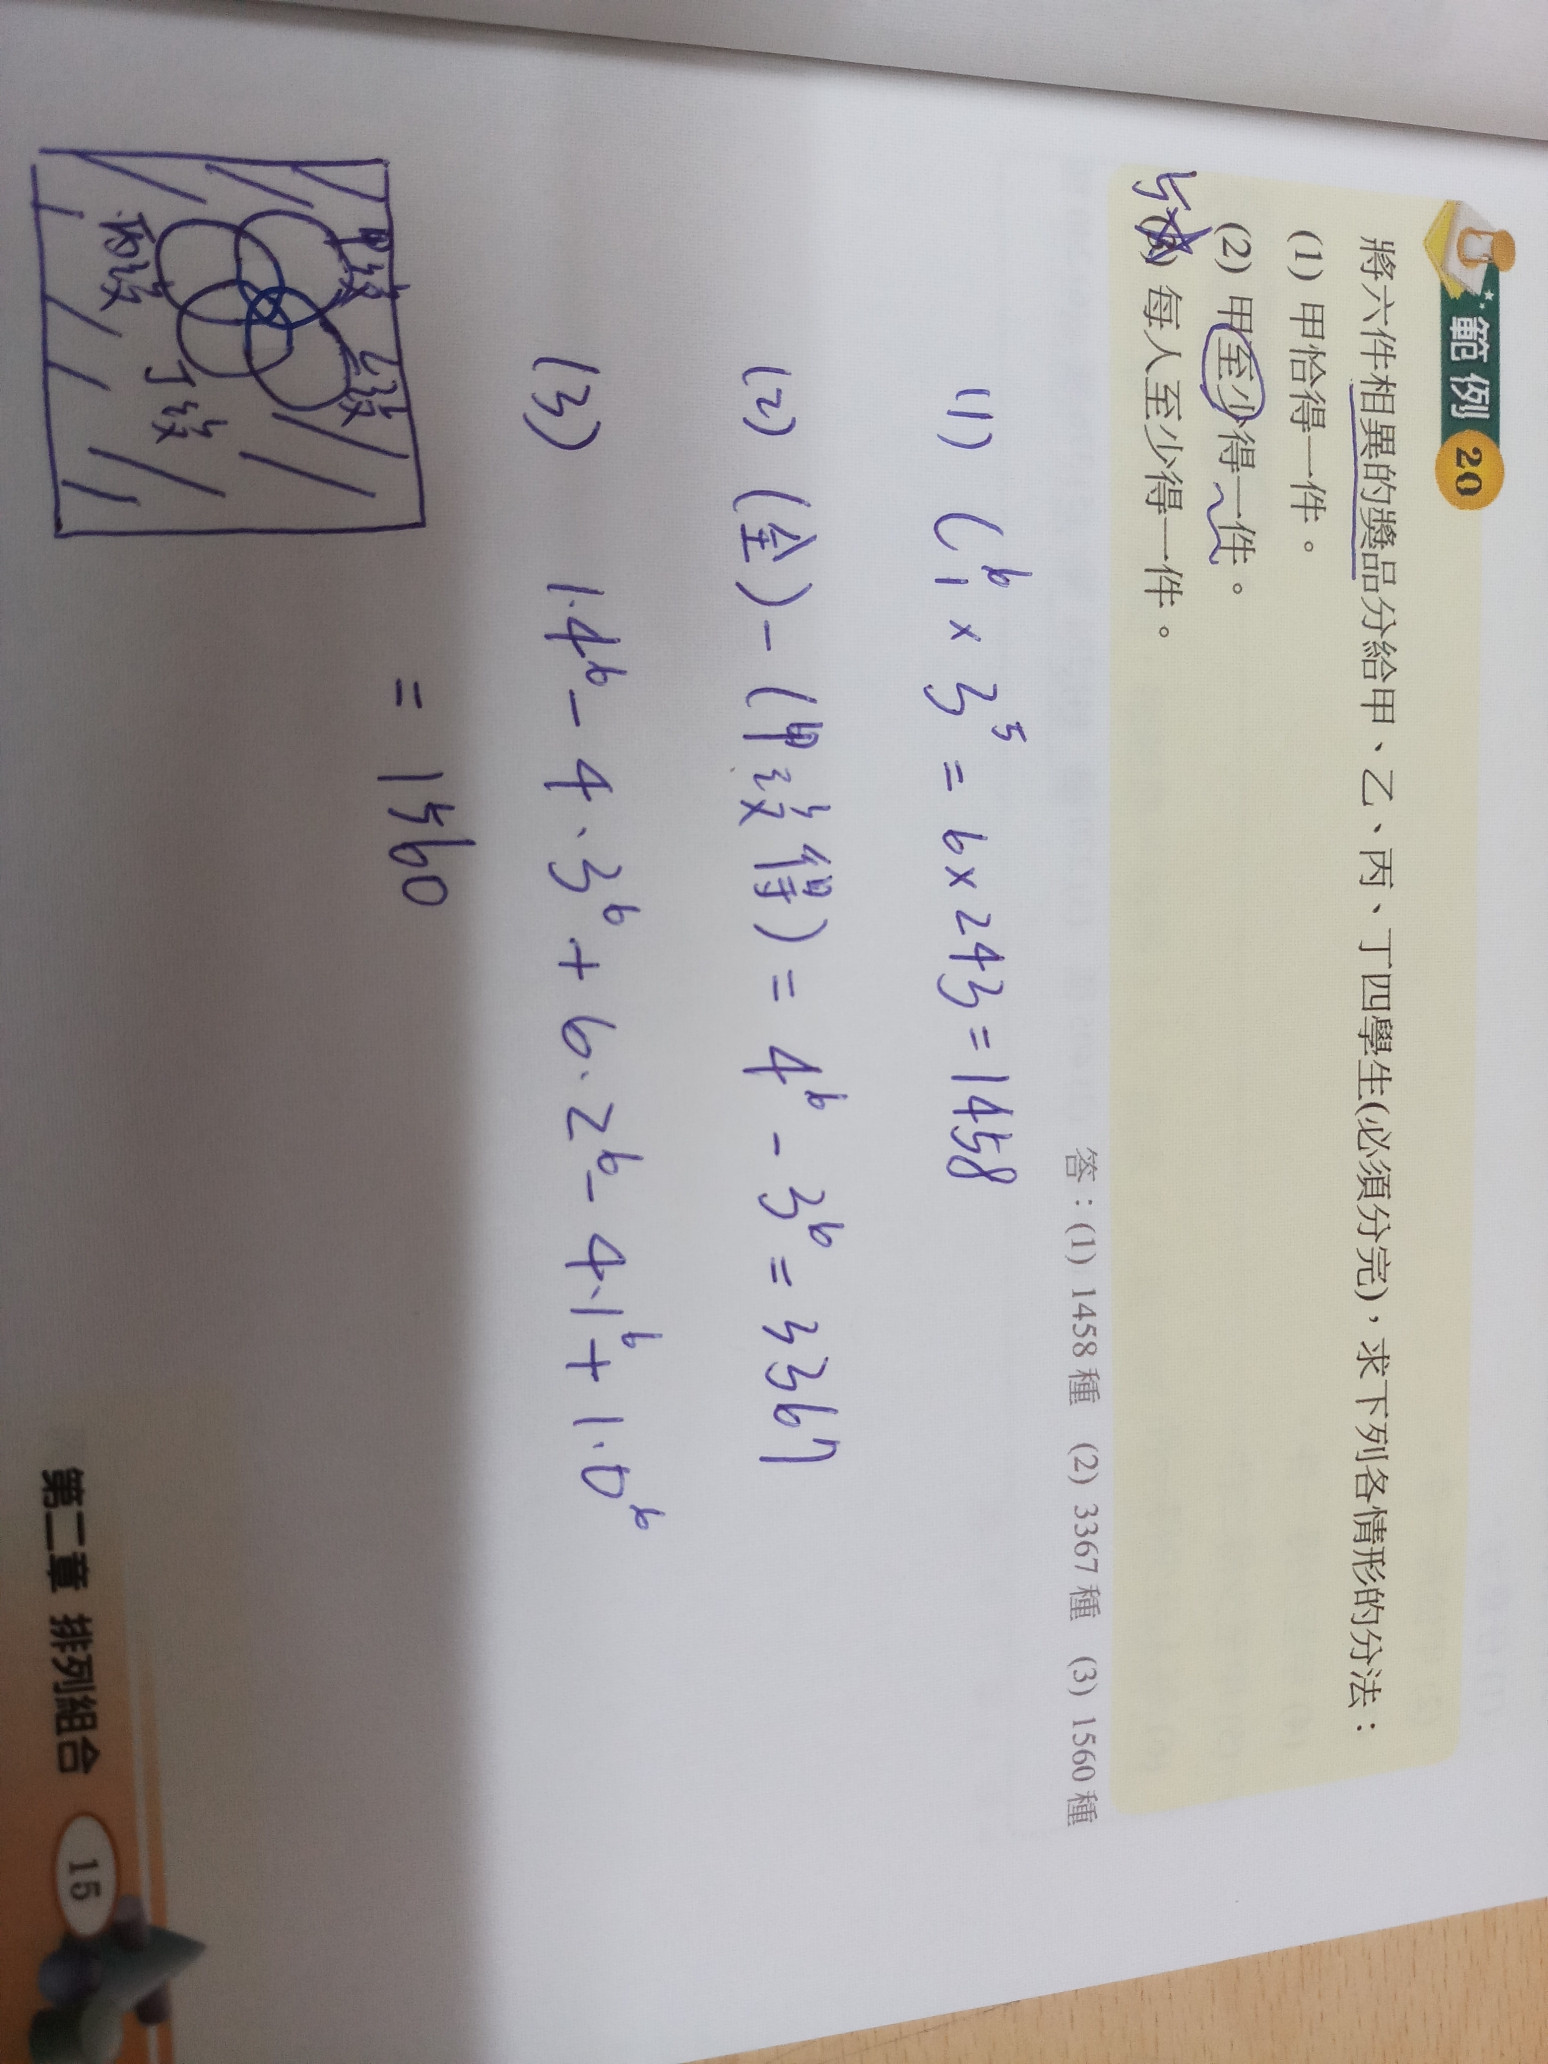 範例 20
將六件相異的獎品分給甲、乙、丙、丁四學生(必須分完)，求下列各情形的分法：
(1) 甲恰得一件。
(2) 甲至少得一件。
(3) 每人至少得一件。
答：(1) 1458 種 (2) 3367 種 (3) 1560 種
(1) C⁶₁ × 3⁵ = 6 × 243 = 1458
(2) (全) - (甲沒得) = 4⁶ - 3⁶ = 3367
(3) 1·4⁶ - 4·3⁶ + 6·2⁶ - 4·1⁶ + 1·0⁶
= 1560
甲沒
乙沒
丙沒
丁沒
第二章 排列組合 15